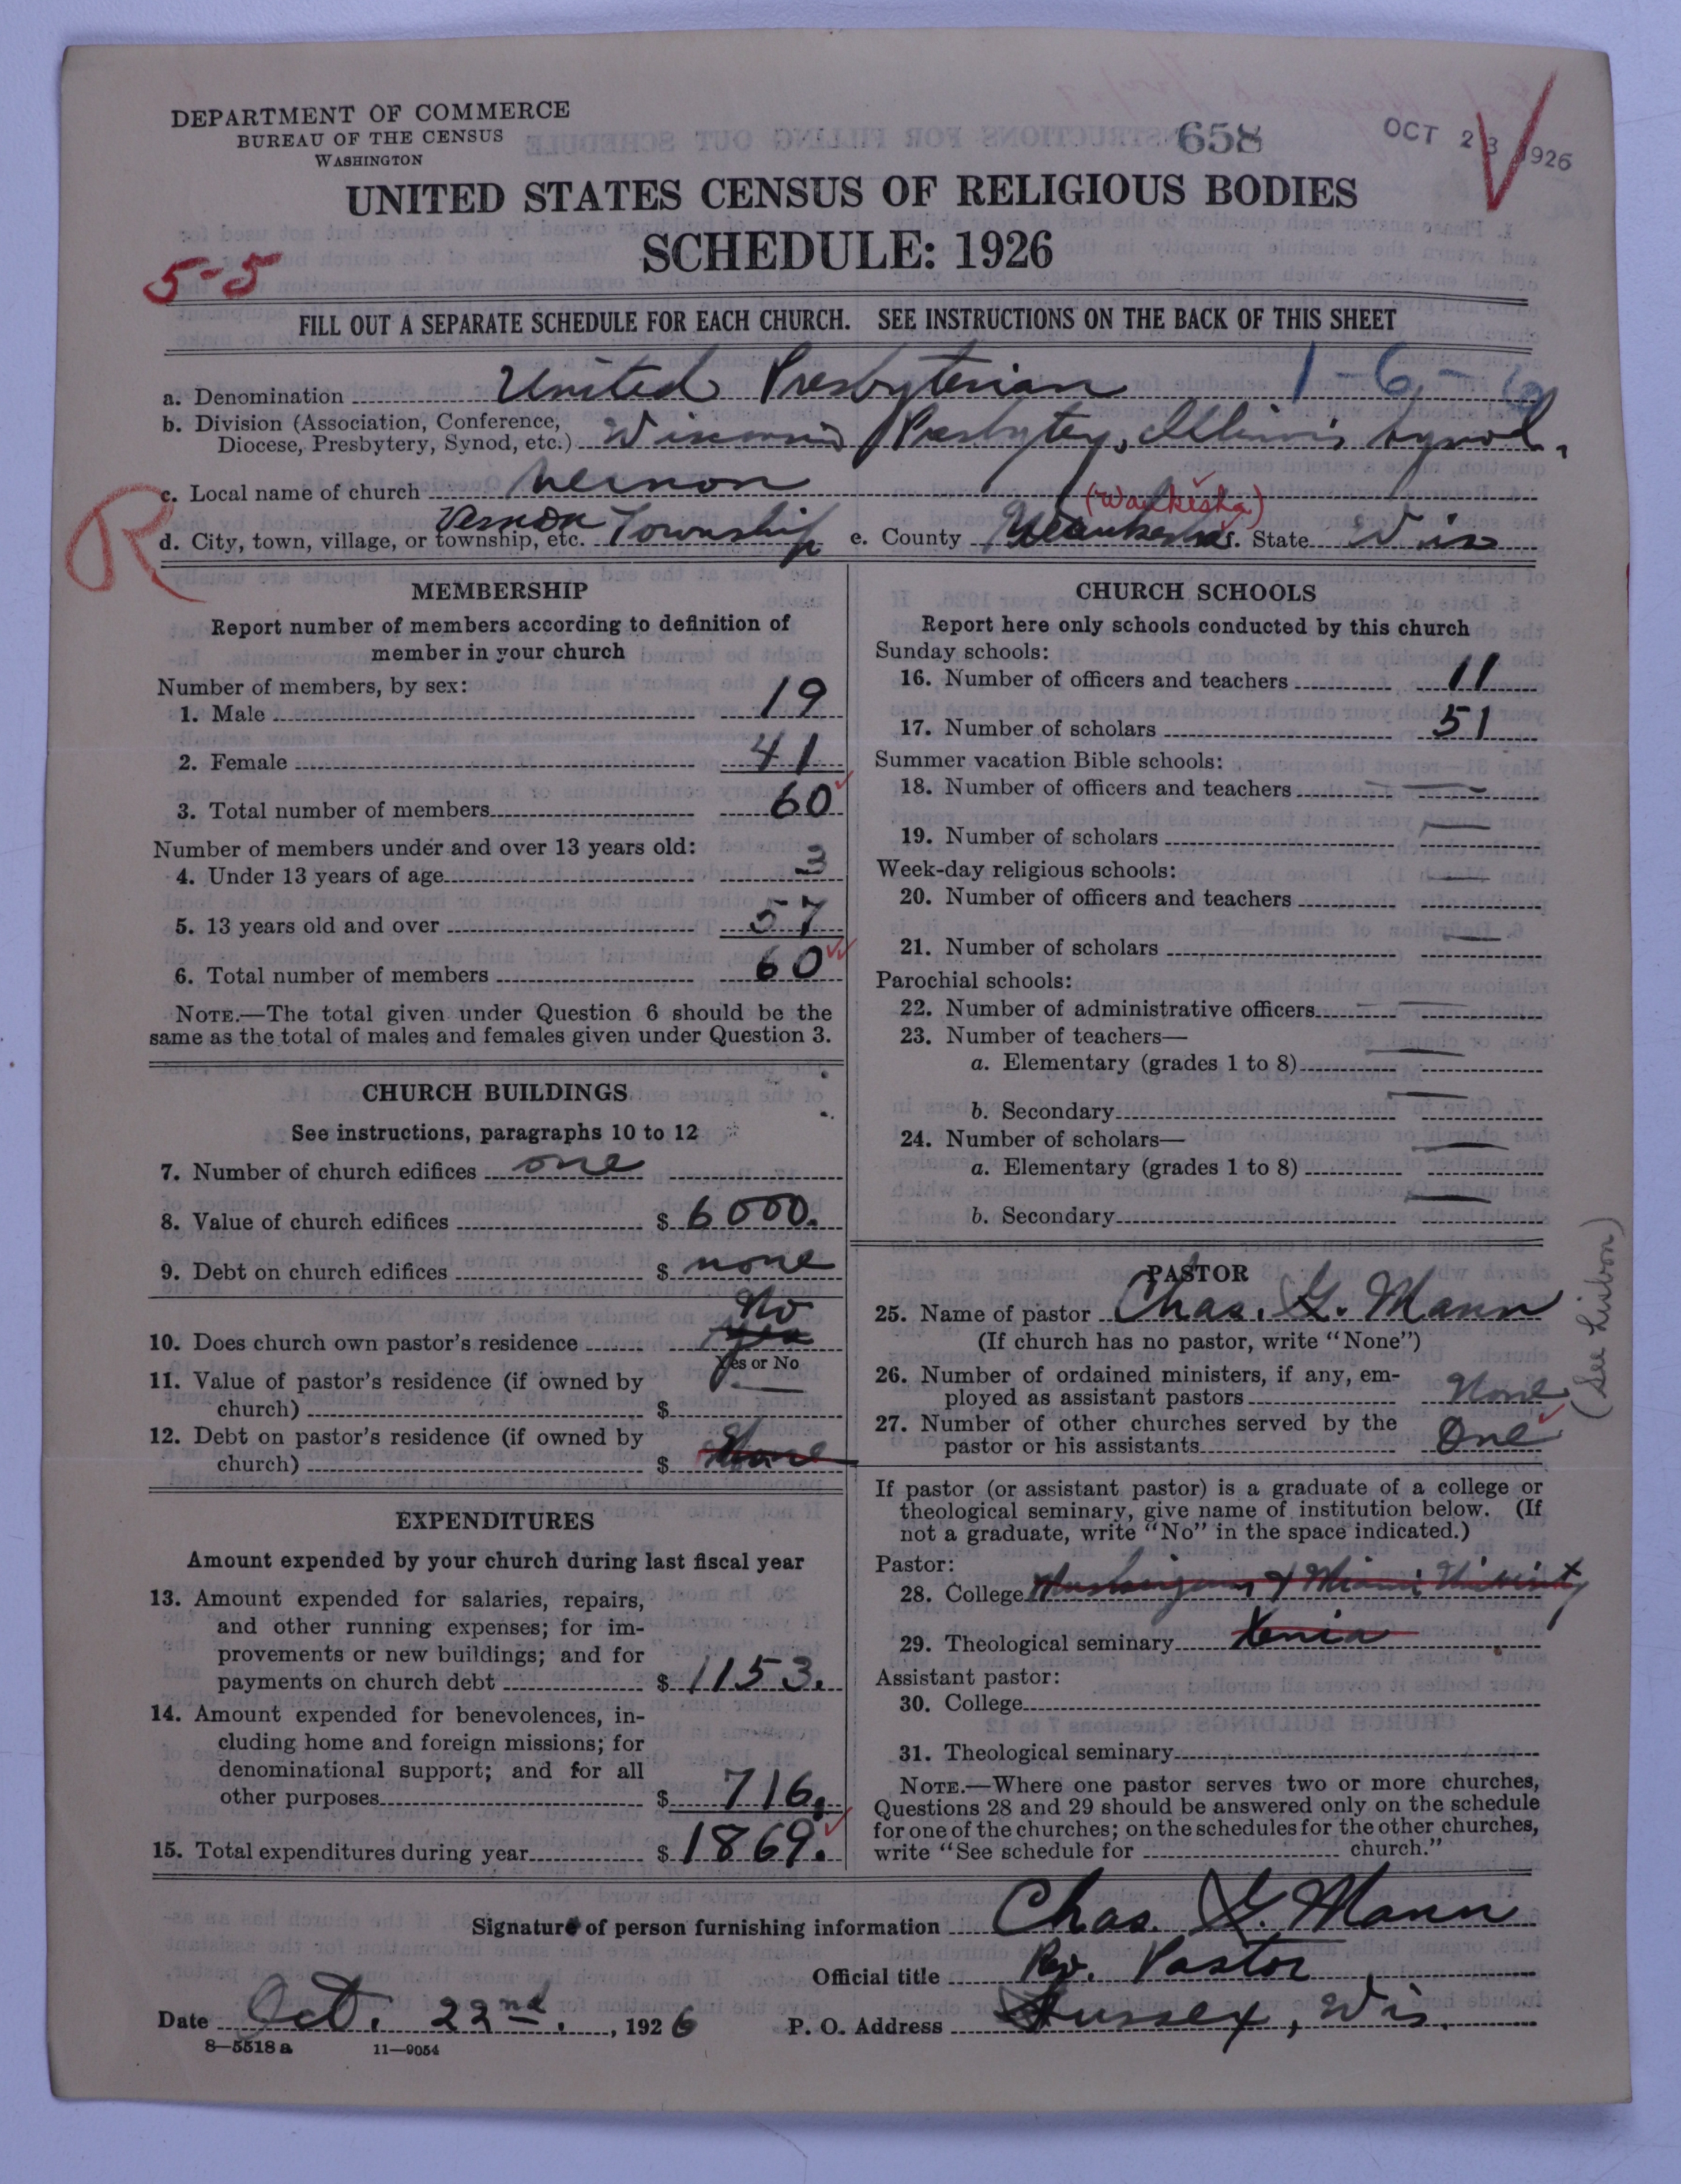 DEPARTMENT OF COMMERCE
BUREAU OF THE CENSUS
WASHINGTON
658
OCT 23 1926
UNITED STATES CENSUS OF RELIGIOUS BODIES
SCHEDULE: 1926
5-5
FILL OUT A SEPARATE SCHEDULE FOR EACH CHURCH. SEE INSTRUCTIONS ON THE BACK OF THIS SHEET
a. Denomination United Presbyterian 1-6-
b. Division (Association, Conference,
Diocese, Presbytery, Synod, etc.) Wisconsin Presbytery, Illinois Synod.
c. Local name of church Vernon
R
(Waukesha)
d. City, town, village, or township, etc. Vernon Township e. County Waukesha f. State Wis
MEMBERSHIP
Report number of members according to definition of
member in your church
Number of members, by sex:
1. Male 19
2. Female 41
3. Total number of members 60
Number of members under and over 13 years old:
4. Under 13 years of age 3
5. 13 years old and over 57
6. Total number of members 60
NOTE.—The total given under Question 6 should be the
same as the total of males and females given under Question 3.
CHURCH BUILDINGS
See instructions, paragraphs 10 to 12
7. Number of church edifices one
8. Value of church edifices $ 6000.
9. Debt on church edifices $ none
No
10. Does church own pastor's residence yes
Yes or No
11. Value of pastor's residence (if owned by
church) $ —
12. Debt on pastor's residence (if owned by
church) $ None
EXPENDITURES
Amount expended by your church during last fiscal year
13. Amount expended for salaries, repairs,
and other running expenses; for im-
provements or new buildings; and for
payments on church debt $ 1153.
14. Amount expended for benevolences, in-
cluding home and foreign missions; for
denominational support; and for all
other purposes $ 716.
15. Total expenditures during year $ 1869.
CHURCH SCHOOLS
Report here only schools conducted by this church
Sunday schools:
16. Number of officers and teachers 11
17. Number of scholars 51
Summer vacation Bible schools:
18. Number of officers and teachers —
19. Number of scholars —
Week-day religious schools:
20. Number of officers and teachers —
21. Number of scholars —
Parochial schools:
22. Number of administrative officers —
23. Number of teachers—
a. Elementary (grades 1 to 8) —
b. Secondary —
24. Number of scholars—
a. Elementary (grades 1 to 8) —
b. Secondary —
PASTOR
25. Name of pastor Chas. G. Mann
(If church has no pastor, write "None")
26. Number of ordained ministers, if any, em-
ployed as assistant pastors None
27. Number of other churches served by the
pastor or his assistants One
(See Lisbon)
If pastor (or assistant pastor) is a graduate of a college or
theological seminary, give name of institution below. (If
not a graduate, write "No" in the space indicated.)
Pastor:
28. College Muskingum & Miami University
29. Theological seminary Xenia
Assistant pastor:
30. College
31. Theological seminary
NOTE.—Where one pastor serves two or more churches,
Questions 28 and 29 should be answered only on the schedule
for one of the churches; on the schedules for the other churches,
write "See schedule for church."
Signature of person furnishing information Chas. G. Mann
Official title Rev. Pastor
Date Oct. 22nd., 1926 P. O. Address Sussex, Wis.
8-5518a 11-9054